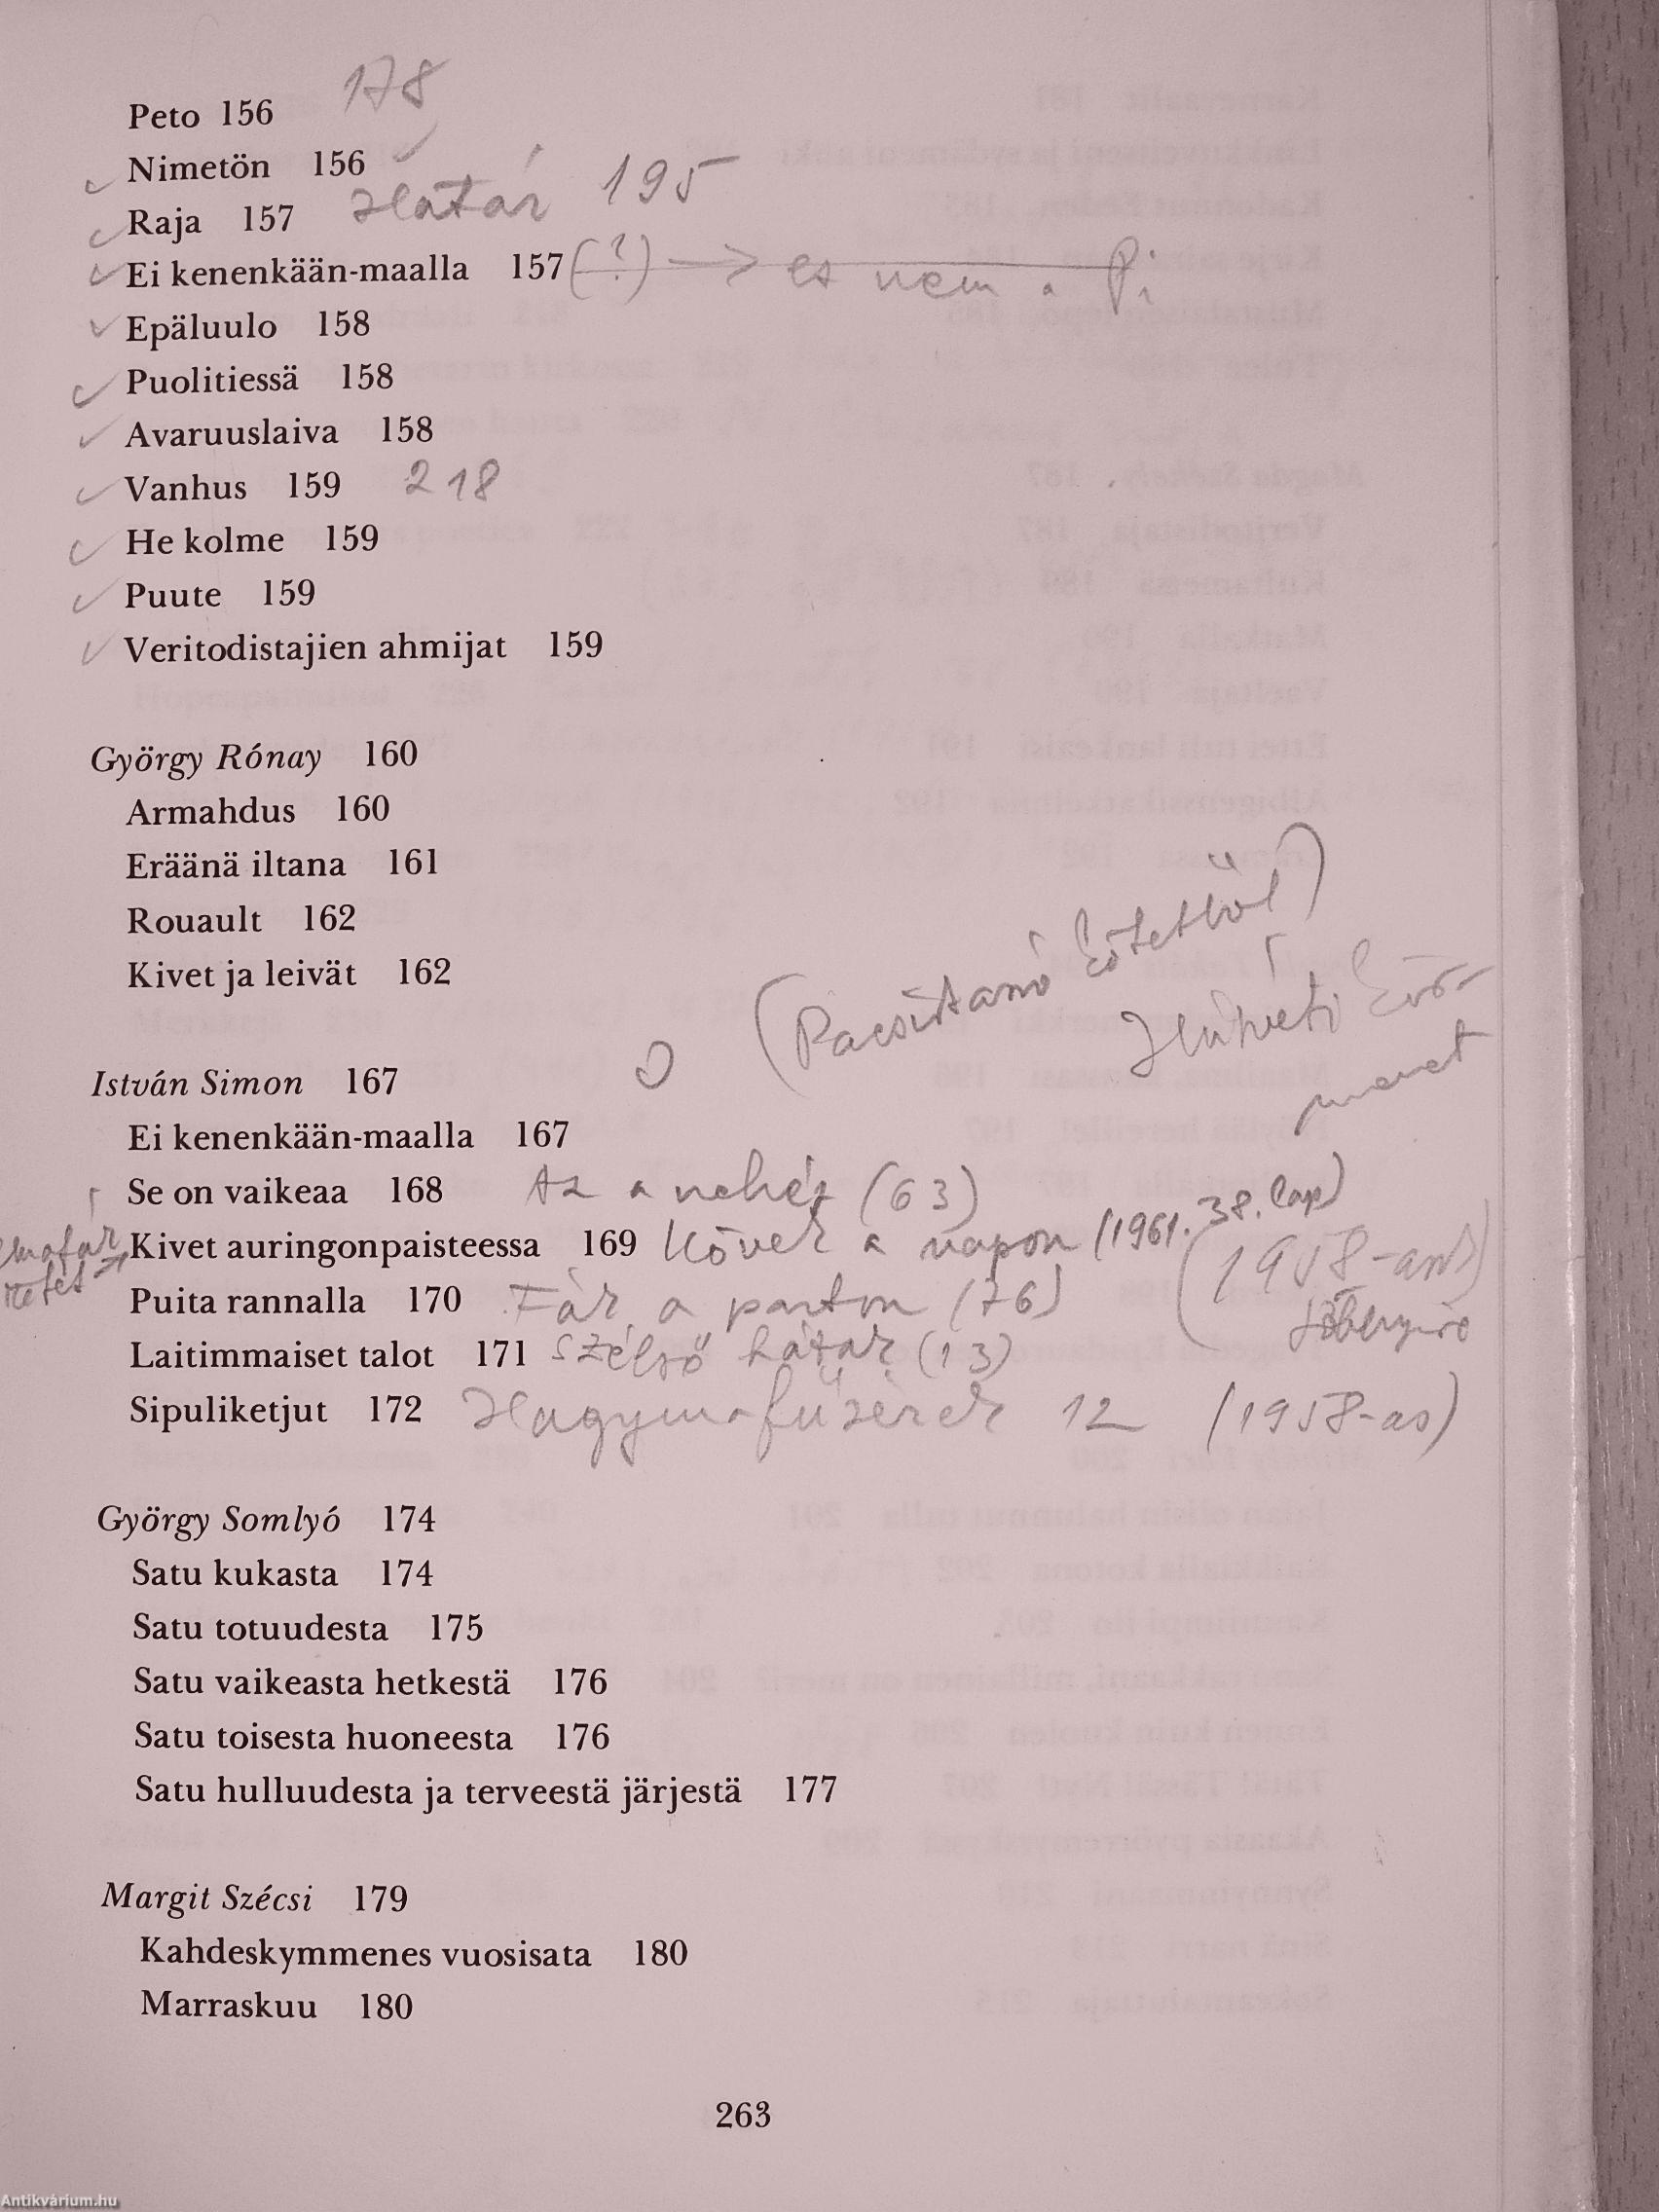 Peto 156 178
Nimetön 156
Raja 157 Határ 195
Ei kenenkään-maalla 157 (?) → ez nem a
Epäluulo 158
Puolitiessä 158
Avaruuslaiva 158
Vanhus 159 218
He kolme 159
Puute 159
Veritodistajien ahmijat 159
György Rónay 160
Armahdus 160
Eräänä iltana 161
Rouault 162
Kivet ja leivät 162
(Pacsirtaszó kötetből)
Húsvéti kör-
menet
István Simon 167
Ei kenenkään-maalla 167
Se on vaikeaa 168 Az a nehéz (63)
Kivet auringonpaisteessa 169 Kövek a napon (1961. 38. lap)
Puita rannalla 170 Fák a parton (76)
Laitimmaiset talot 171 Szélső házak (13)
Sipuliketjut 172 Hagymafüzérek 12 (1958-as)
György Somlyó 174
Satu kukasta 174
Satu totuudesta 175
Satu vaikeasta hetkestä 176
Satu toisesta huoneesta 176
Satu hulluudesta ja terveestä järjestä 177
Margit Szécsi 179
Kahdeskymmenes vuosisata 180
Marraskuu 180
263
Antikvárium.hu